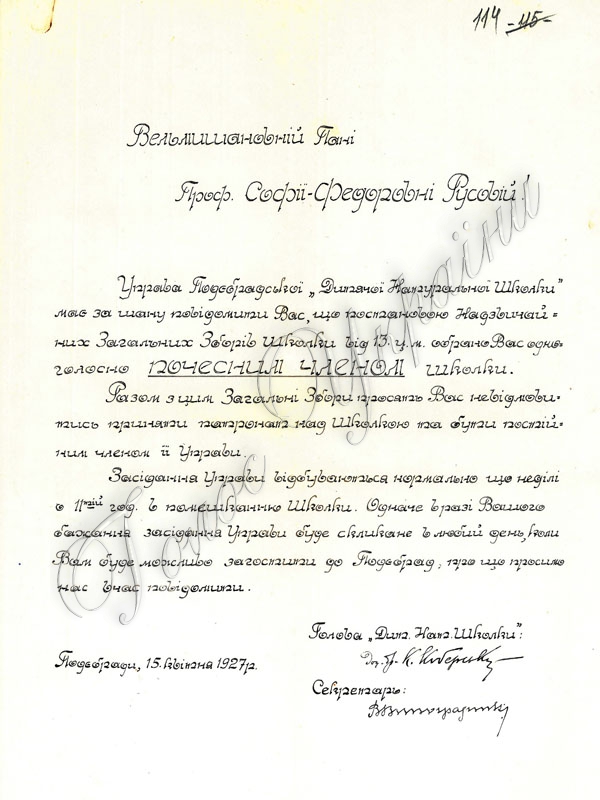 114 -115-
Вельмишановній Пані
Проф. Софії-Федоровні Русовій!
Управа Подєбрадської „Дитячої Натуральної Школки"
має за шану повідомити Вас, що постановою Надзвичай=
них Загальних Зборів Школки від 13. ц.м. обрано Вас одно-
голосно ПОЧЕСНИМ ЧЛЕНОМ школки.
Разом з цим Загальні Збори просять Вас невідмови-
тись приняти патронат над Школкою та бути постій-
ним членом її Управи.
Засідання Управи відбуваються нормально що неділі
о 11тій год. в помешканню Школки. Одначе вразі Вашого
бажання засідання Управи буде скликане в любий день, коли
Вам буде можливо загостити до Подєбрад, про що просимо
нас вчас повідомити.
Голова „Дит. Нат. Школки":
Подєбради, 15. квітня 1927р.
Секретарь:
Голос України